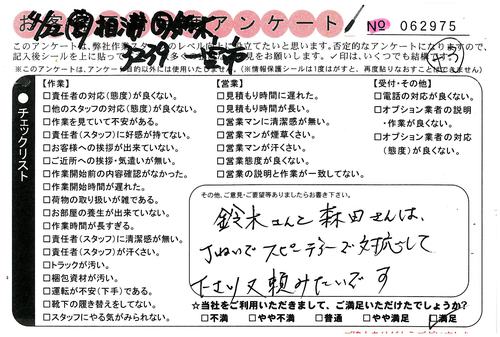 アンケート
No 062975
このアンケートは、弊社作業ス
のレベル向上に役立てたいと思います。否定的なアンケートになりますので、
記入後シールを上に貼って
見をお願いします。✓印は、いくつでも結構です。
※このアンケートは、アンケート目的以外には使用いたしません。(※情報保護シールは1度はがすと、再度貼りなおすことはできません)
チェックリスト
【作業】
□責任者の対応(態度)が良くない。
□他のスタッフの対応(態度)が良くない。
□作業を見ていて不安がある。
□責任者(スタッフ)に好感が持てない。
□お客様への挨拶が出来ていない。
□ご近所への挨拶・気遣いが無い。
□作業開始前の内容確認がなかった。
□作業開始時間が遅れた。
□荷物の取り扱いが雑である。
□お部屋の養生が出来ていない。
□作業時間が長すぎる。
□責任者(スタッフ)に清潔感が無い。
□責任者(スタッフ)が汗くさい。
□トラックが汚い。
□梱包資材が汚い。
□運転が不安(下手)である。
□靴下の履き替えをしてない。
□スタッフにやる気がみられない。
【営業】
□見積もり時間に遅れた。
□見積もり時間が長い。
□営業マンに清潔感が無い。
□営業マンが煙草くさい。
□営業マンが汗くさい。
□営業態度が良くない。
□営業の説明と作業が一致してない。
【受付・その他】
□電話の対応が良くない。
□オプション業者の説明
・作業が良くない。
□オプション業者の対応
(態度)が良くない。
その他、ご意見・ご要望等ありましたらお書き下さい。
鈴木さんと森田さんは、
丁ねいでスピーディーで対応して
下さり又頼みたいです
☆当社をご利用いただきまして、ご満足いただけたでしょうか?
□不満 □やや不満 □普通 □やや満足 ☑満足